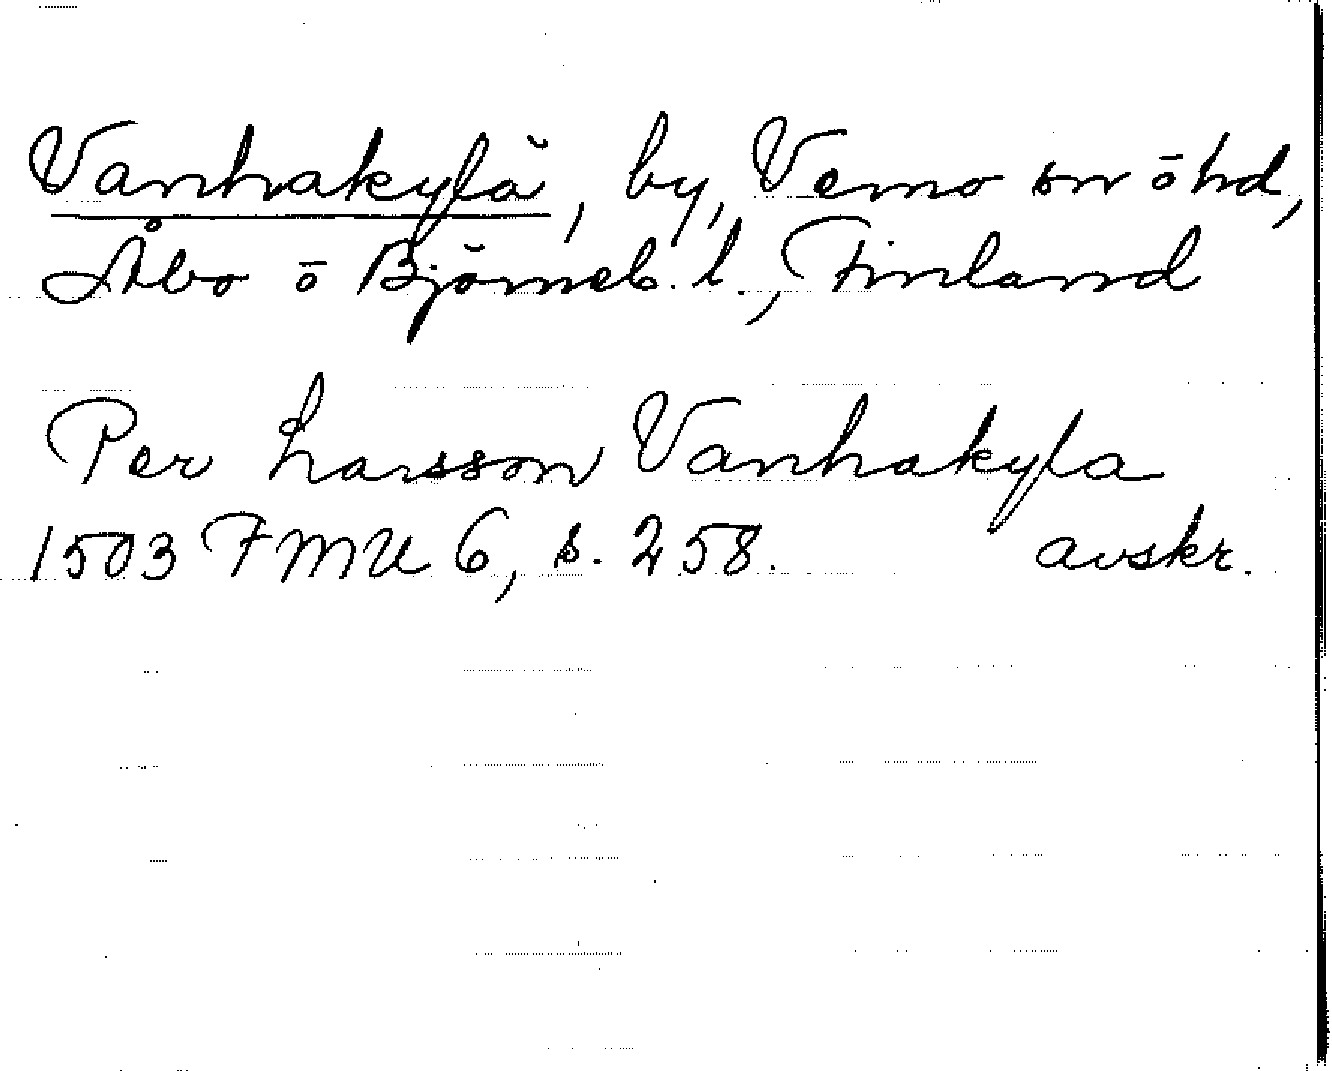 Vanhakylä, by, Vemo sn o hd,
Åbo o Björneb. l., Finland
Per Larsson Vanhakyla
1503 FMU 6, s. 258. avskr.